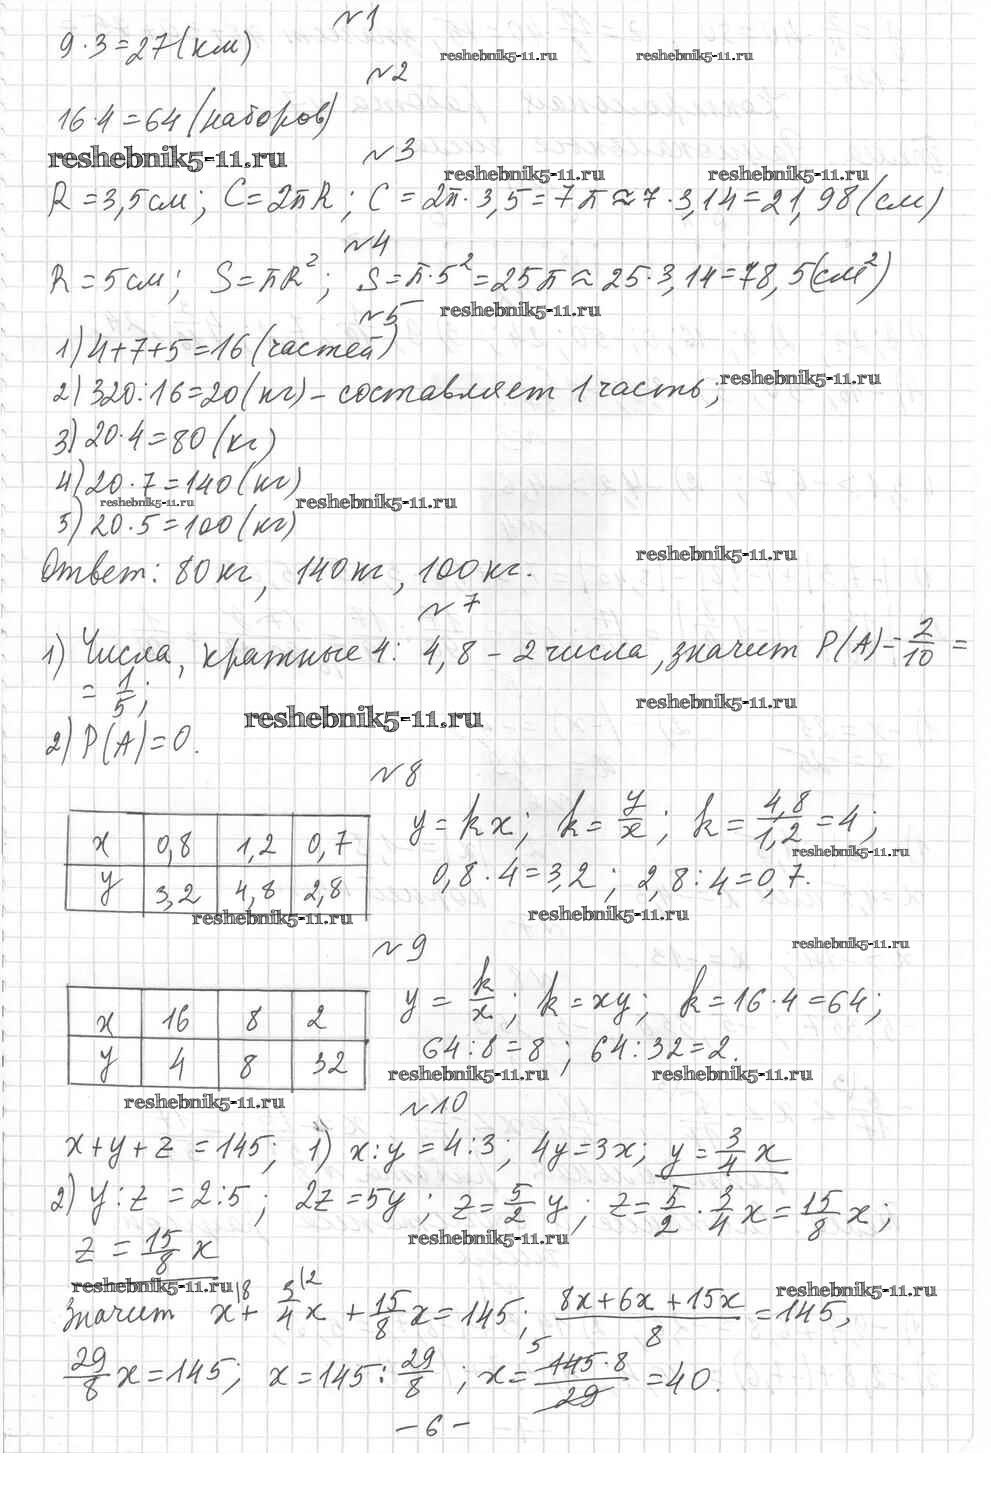 №1
9·3=27(км)
reshebnik5-11.ru reshebnik5-11.ru
№2
16·4=64(наборов)
reshebnik5-11.ru
№3
reshebnik5-11.ru reshebnik5-11.ru
R=3,5см; C=2πR; C=2π·3,5=7π≈7·3,14=21,98(см)
№4
R=5см; S=πR²; S=π·5²=25π≈25·3,14=78,5(см²)
№5
reshebnik5-11.ru
1) 4+7+5=16(частей)
2) 320:16=20(кг) – составляет 1 часть;
reshebnik5-11.ru
3) 20·4=80(кг)
4) 20·7=140(кг)
reshebnik5-11.ru reshebnik5-11.ru
5) 20·5=100(кг)
reshebnik5-11.ru
Ответ: 80кг, 140кг, 100кг.
№7
1) Числа, кратные 4: 4,8 – 2 числа, значит P(A)=2/10=
=1/5;
reshebnik5-11.ru
reshebnik5-11.ru
2) P(A)=0.
№8
x 0,8 1,2 0,7
y 3,2 4,8 2,8
y=kx; k=y/x; k=4,8/1,2=4;
reshebnik5-11.ru
0,8·4=3,2; 2,8:4=0,7.
reshebnik5-11.ru reshebnik5-11.ru
№9
reshebnik5-11.ru
x 16 8 2
y 4 8 32
y=k/x; k=xy; k=16·4=64;
64:8=8; 64:32=2.
reshebnik5-11.ru reshebnik5-11.ru
reshebnik5-11.ru
№10
x+y+z=145; 1) x:y=4:3; 4y=3x; y=3/4x
2) y:z=2:5; 2z=5y; z=5/2y; z=5/2·3/4x=15/8x;
reshebnik5-11.ru
z=15/8x
reshebnik5-11.ru reshebnik5-11.ru
Значит x\8+3/4\2x+15/8x=145; 8x+6x+15x/8=145,
29/8x=145; x=145:29/8; x=5 145·8/29=40.
–6–